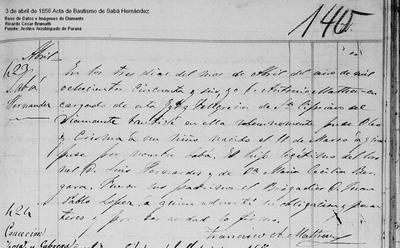 3 de abril de 1856 Acta de Bautismo de Sabá Hernández
Base de Datos e Imágenes de Diamante
Ricardo Cesar Brumatti
Fuente: Archivo Arzobispado de Paraná
140
Abril
423
Sabá
Hernandez
En los tres dias del mes de Abril del año de mil
ochocientos cincuenta y seis, yo C. Antonio
cargado de esta
Diamante bautizé en ella solemnemente puse Oleo
y Crisma á un niño nacido el 11 de Marzo á quien
puse por nombre Sabá. Es hijo legítimo del
Dn. Luis Hernandez, y de Da. Maria Cecilia
Fueron sus padrinos el Brigadier D. Juan
Pablo Lopez, á quien advertí la obligacion y
y por verdad lo firmo.
Francisco A.
424
Concecion